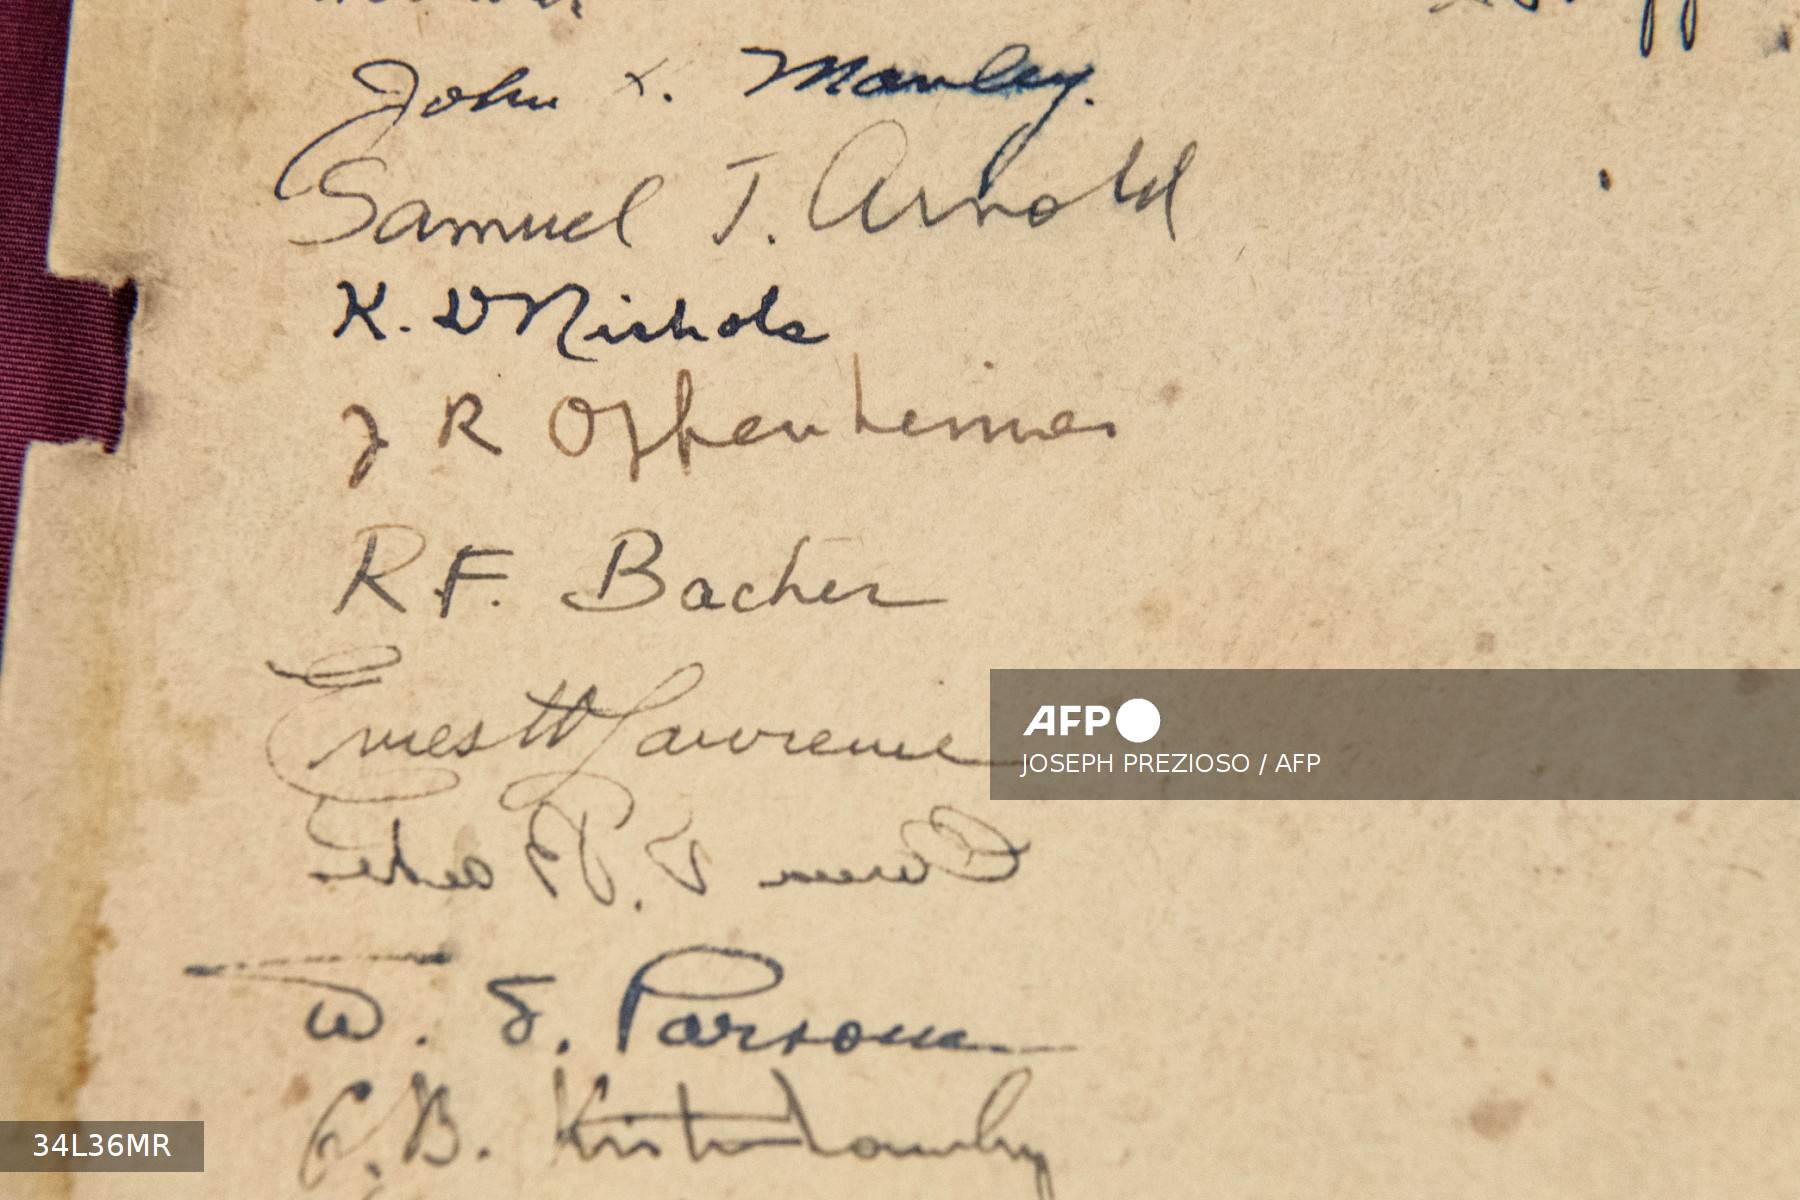 John H. Manley.
Samuel T. Arnold
K. D Nichols
J R Oppenheimer
R. F. Bacher
Ernest O Lawrence
AFP
JOSEPH PREZIOSO / AFP
W. S. Parsons
G. B. Kistiakowsky
34L36MR